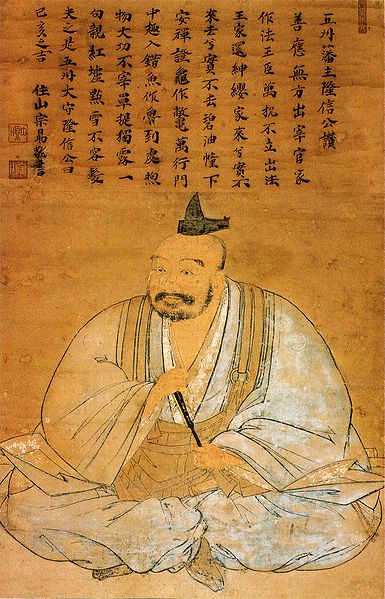 五州藩主隆信公讃
善應無方出宰官家
作法王臣萬机不立出法
王家還紳纓家來兮實不
來去兮實不去碧油幢下
安禪證竈作鼇萬行門
中趣入錯魚作魯到處煦
物大功不宰單提獨露一
句親紅爐點雪不容髪
夫之是五州太守隆信公曰
己亥之吉 住山宗易書